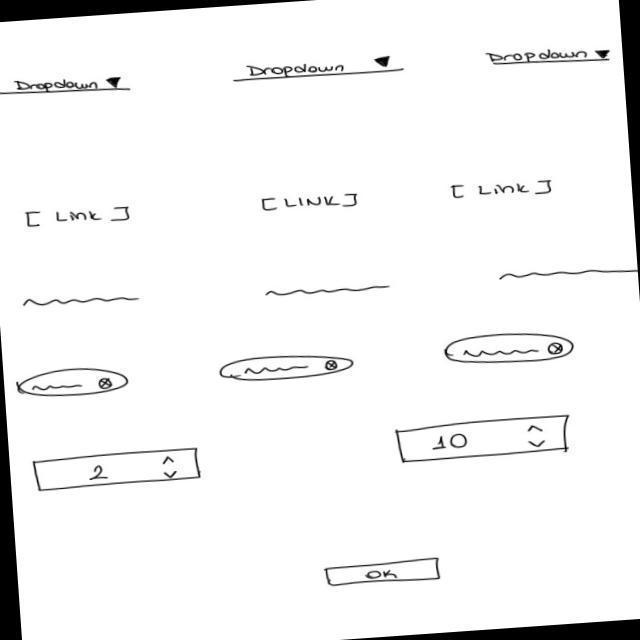 Dropdown Dropdown Dropdown
[ Link ] [ LINK ] [ Link ]
2 10
OK